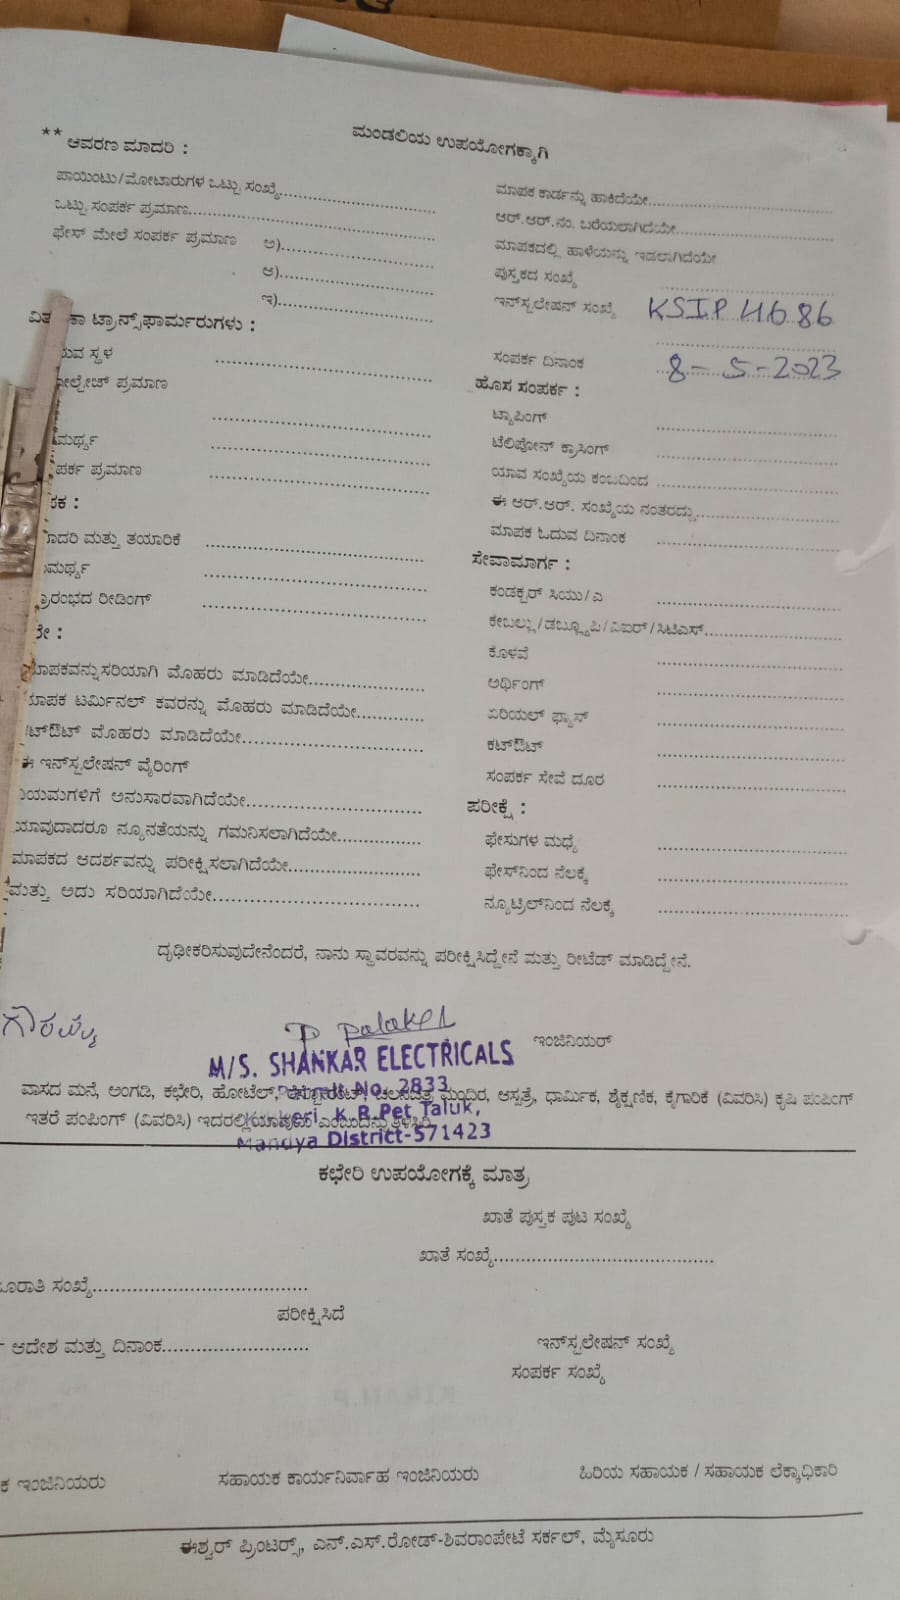 ಮಂಡಲಿಯ ಉಪಯೋಗಕ್ಕಾಗಿ
** ಆವರಣ ಮಾದರಿ :
ಪಾಯಿಂಟು/ಮೋಟಾರುಗಳ ಒಟ್ಟು ಸಂಖ್ಯೆ
ಒಟ್ಟು ಸಂಪರ್ಕ ಪ್ರಮಾಣ
ಫೇಸ್ ಮೇಲೆ ಸಂಪರ್ಕ ಪ್ರಮಾಣ ಅ)
ಆ)
ಇ)
ಟ್ರಾನ್ಸ್‌ಫಾರ್ಮರುಗಳು :
ಸ್ಥಳ
ಪ್ರಮಾಣ
ಪ್ರಮಾಣ
ಮತ್ತು ತಯಾರಿಕೆ
ರೀಡಿಂಗ್
ಸರಿಯಾಗಿ ಮೊಹರು ಮಾಡಿದೆಯೇ
ಟರ್ಮಿನಲ್ ಕವರನ್ನು ಮೊಹರು ಮಾಡಿದೆಯೇ
ಮೊಹರು ಮಾಡಿದೆಯೇ
ಈ ಇನ್‌ಸ್ಟಲೇಷನ್ ವೈರಿಂಗ್
ಅನುಸಾರವಾಗಿದೆಯೇ
ಯಾವುದಾದರೂ ನ್ಯೂನತೆಯನ್ನು ಗಮನಿಸಲಾಗಿದೆಯೇ
ಮಾಪಕದ ಆದರ್ಶವನ್ನು ಪರೀಕ್ಷಿಸಲಾಗಿದೆಯೇ
ಮತ್ತು ಅದು ಸರಿಯಾಗಿದೆಯೇ
ಮಾಪಕ ಕಾರ್ಡನ್ನು ಹಾಕಿದೆಯೇ
ಆರ್.ಆರ್.ನಂ. ಬರೆಯಲಾಗಿದೆಯೇ
ಮಾಪಕದಲ್ಲಿ ಹಾಳೆಯನ್ನು ಇಡಲಾಗಿದೆಯೇ
ಪುಸ್ತಕದ ಸಂಖ್ಯೆ
ಇನ್‌ಸ್ಟಲೇಷನ್ ಸಂಖ್ಯೆ KSIP 4686
ಸಂಪರ್ಕ ದಿನಾಂಕ 8-5-2023
ಹೊಸ ಸಂಪರ್ಕ :
ಟ್ಯಾಪಿಂಗ್
ಟೆಲಿಪೋನ್ ಕ್ರಾಸಿಂಗ್
ಯಾವ ಸಂಖ್ಯೆಯ ಕಂಬದಿಂದ
ಈ ಆರ್.ಆರ್. ಸಂಖ್ಯೆಯ ನಂತರದ್ದು
ಮಾಪಕ ಓದುವ ದಿನಾಂಕ
ಸೇವಾಮಾರ್ಗ :
ಕಂಡಕ್ಟರ್ ಸಿಯು/ಎ
ಕೇಬಲ್ಲು/ಡಬ್ಲ್ಯೂಪಿ/ವಿಐಆರ್/ಸಿಟಿಎಸ್
ಕೊಳವೆ
ಅರ್ಥಿಂಗ್
ಏರಿಯಲ್ ಫ್ಯೂಸ್
ಕಟ್‌ಔಟ್
ಸಂಪರ್ಕ ಸೇವೆ ದೂರ
ಪರೀಕ್ಷೆ :
ಫೇಸುಗಳ ಮಧ್ಯೆ
ಫೇಸ್‌ನಿಂದ ನೆಲಕ್ಕೆ
ನ್ಯೂಟ್ರಲ್‌ನಿಂದ ನೆಲಕ್ಕೆ
ದೃಢೀಕರಿಸುವುದೇನೆಂದರೆ, ನಾನು ಸ್ಥಾವರವನ್ನು ಪರೀಕ್ಷಿಸಿದ್ದೇನೆ ಮತ್ತು ರೀಟೆಡ್ ಮಾಡಿದ್ದೇನೆ.
ಗೌರಮ್ಮ
ಇಂಜಿನಿಯರ್
M/S. SHANKAR ELECTRICALS
No. 2833
K.R.Pet Taluk,
Mandya District-571423
ವಾಸದ ಮನೆ, ಅಂಗಡಿ, ಕಛೇರಿ, ಹೋಟೆಲ್, ಮಂದಿರ, ಆಸ್ಪತ್ರೆ, ಧಾರ್ಮಿಕ, ಶೈಕ್ಷಣಿಕ, ಕೈಗಾರಿಕೆ (ವಿವರಿಸಿ) ಕೃಷಿ ಪಂಪಿಂಗ್
ಇತರೆ ಪಂಪಿಂಗ್ (ವಿವರಿಸಿ)
ಕಛೇರಿ ಉಪಯೋಗಕ್ಕೆ ಮಾತ್ರ
ಖಾತೆ ಪುಸ್ತಕ ಪುಟ ಸಂಖ್ಯೆ
ಖಾತೆ ಸಂಖ್ಯೆ
ಸಂಖ್ಯೆ
ಪರೀಕ್ಷಿಸಿದೆ
ಆದೇಶ ಮತ್ತು ದಿನಾಂಕ
ಇನ್‌ಸ್ಟಲೇಷನ್ ಸಂಖ್ಯೆ
ಸಂಪರ್ಕ ಸಂಖ್ಯೆ
ಇಂಜಿನಿಯರು ಸಹಾಯಕ ಕಾರ್ಯನಿರ್ವಾಹ ಇಂಜಿನಿಯರು ಹಿರಿಯ ಸಹಾಯಕ / ಸಹಾಯಕ ಲೆಕ್ಕಾಧಿಕಾರಿ
ಈಶ್ವರ್ ಪ್ರಿಂಟರ್ಸ್, ಎನ್.ಎಸ್.ರೋಡ್-ಶಿವರಾಂಪೇಟೆ ಸರ್ಕಲ್, ಮೈಸೂರು